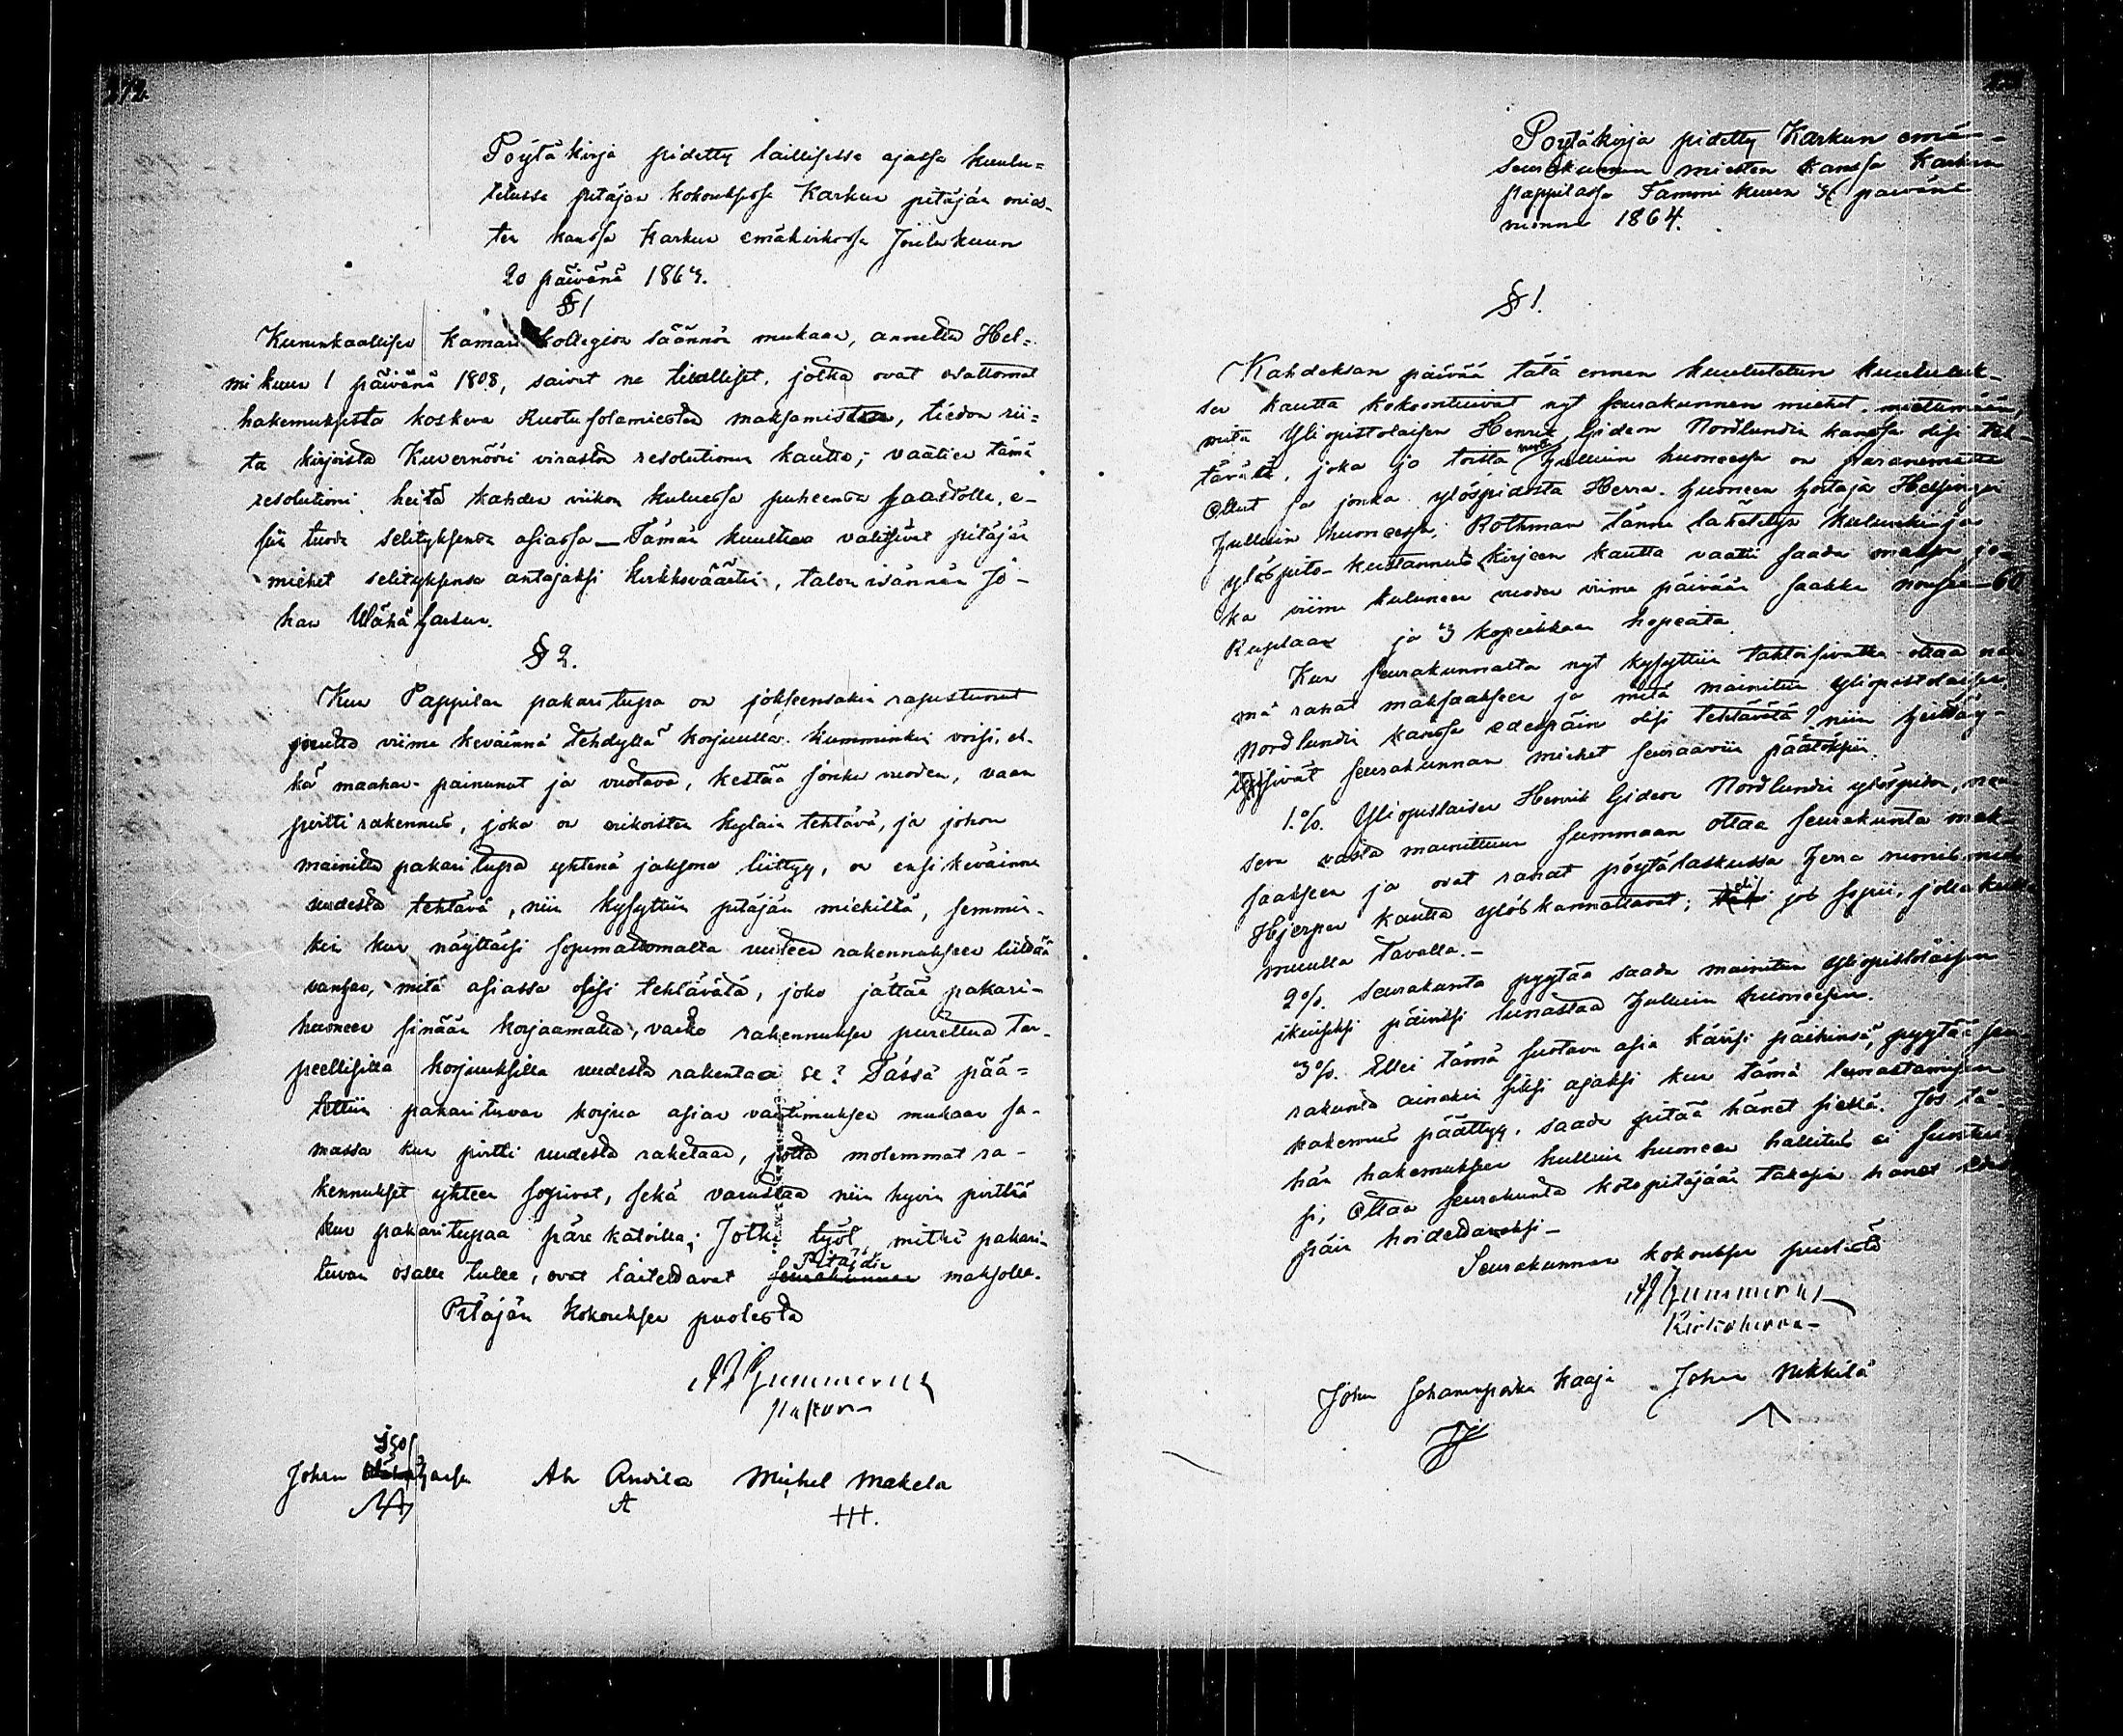 272.
Pöytäkirja pidetty laillisessa ajassa kuulu=
tetussa pitäjän kokouksessa Karkun pitäjän mies-
ten kanssa Karkun emäkirkossa Joulukuun
20 päivänä 1863.
§ 1
Kuninkaallisen Kamari Kollegion säännön mukaan, annettu Hel=
mi kuun 1 päivänä 1808, saivat ne tilalliset, jotka ovat osattomat
hakemuksista koskeva Ruotusotamiesten maksamista, tiedon rii=
ta kirjoista Kuvernööri viraston resolutionin kautta; vaatien tämä
resolutioni heitä kahden viikon kuluessa puheensa saatolle, e-
siin tuoda selityksensä asiassa — Tämän kuultua valitsivat pitäjän
miehet selityksensä antajaksi Kirkkoväärtin, talon isännän Jo-
han Wähä Hassun.
§ 2.
Kun Pappilan pakaritupa on jokseensakin rapistunut
mutta viime keväinnä tehdyllä korjuulla kumminkin voisi, eh-
kä maahan painunut ja vuotava, kestää jonku vuoden, vaan
pirtti rakennus, joka on erikoisten kyläin tehtävä, ja johon
mainittu pakaritupa yhtenä jaksona liittyy, on ensi keväinnä
uudesta tehtävä, niin kysyttiin pitäjän miehiltä, semmin-
kin kun näyttäisi sopimattomalta uuteen rakennukseen liittää
vanhan, mitä asiassa olisi tehtävätä, joko jättää pakari-
huoneen sinään korjaamatta, vaiko rakennuksen purettua tar-
peellisilla korjuuksilla uudesta rakentaa se? Tässä pää=
tettiin pakarituvan korjua asian vaatimuksen mukaan sa-
massa kun pirtti uudesta raketaan, jotta molemmat ra-
kennukset yhteen sopivat, sekä varustaa niin hyvin pirttiä
kun pakaritupaa päre katoilla; Jotka työt, mitkä pakari-
tuvan osalle tulee, ovat laitettavat seurakunnan Pitäjän maksolla.
Pitäjän kokouksen puolesta
A J Gummerus
Pastori
Johan Wähä Iso Hassu Ah Anvila Michel Makela
Pöytäkirja pidetty Karkun emän-
seurakunnan miesten kanssa Karkun
pappilassa Tammi kuun 3 päivänä
vuonna 1864.
§ 1.
Kahdeksan päivää tätä ennen kuulutetun kuulutuk-
sen kautta kokoontuivat nyt seurakunnan miehet miettimään,
mitä Yliopistolaisen Henrik Gideon Nordlundin kanssa olisi teh-
tävätä, joka jo toista vuotta Hulluin huoneessa on parannettava
ollut ja jonka ylöspidosta Herra Huoneen hoitaja Helsingin
Hulluin huoneessa, Rothman tänne lähetetyn kulunki ja
ylöspito-kustannus kirjeen kautta vaatii saada maksun, jo-
ka viime kuluneen vuoden viime päivään saakka nousee 60
Ruplaan ja 3 kopeikkaan hopeata
Kun seurakunnalta nyt kysyttiin tahtoisivatko ottaa nä-
mä rahat maksaakseen ja mitä mainitun yliopistolaisen
Nordlundin kanssa edespäin olisi tehtävätä? niin
sivät seurakunnan miehet seuraaviin päätöksiin.
1:o/. Yliopistlaisen Henrik Gideon Nordlundin ylöspidon,
sen vasta mainittuun summaan ottaa seurakunta mak-
saakseen ja ovat rahat pöytälaskussa Herra
Hjerpen kautta ylöskannattavat; eli jos sopii, jolla kulla
muulla tavalla.-
2o/. Seurakunta pyytää saada mainitun Yliopistolaisen
ikuiseksi päiviksi lunastaa Hulluin huoneesen.
3o/. Ellei tämä suotava asia kävisi päihinsä, pyytää seu
rakunta ainakin siksi ajaksi kun tämä lunastamisen
hakemus päättyy, saada pitää hänet siellä. Jos tä-
hän hakemukseen hulluin huoneen hallitus ei suostu-
si, Ottaa seurakunta kotopitäjään takasin hänet edes
päin hoidettavaksi-
Seurakunnan kokouksen puolesta
A J Gummerus
Kirkkoherra-
Johan Kaaja Johan Nikkilä